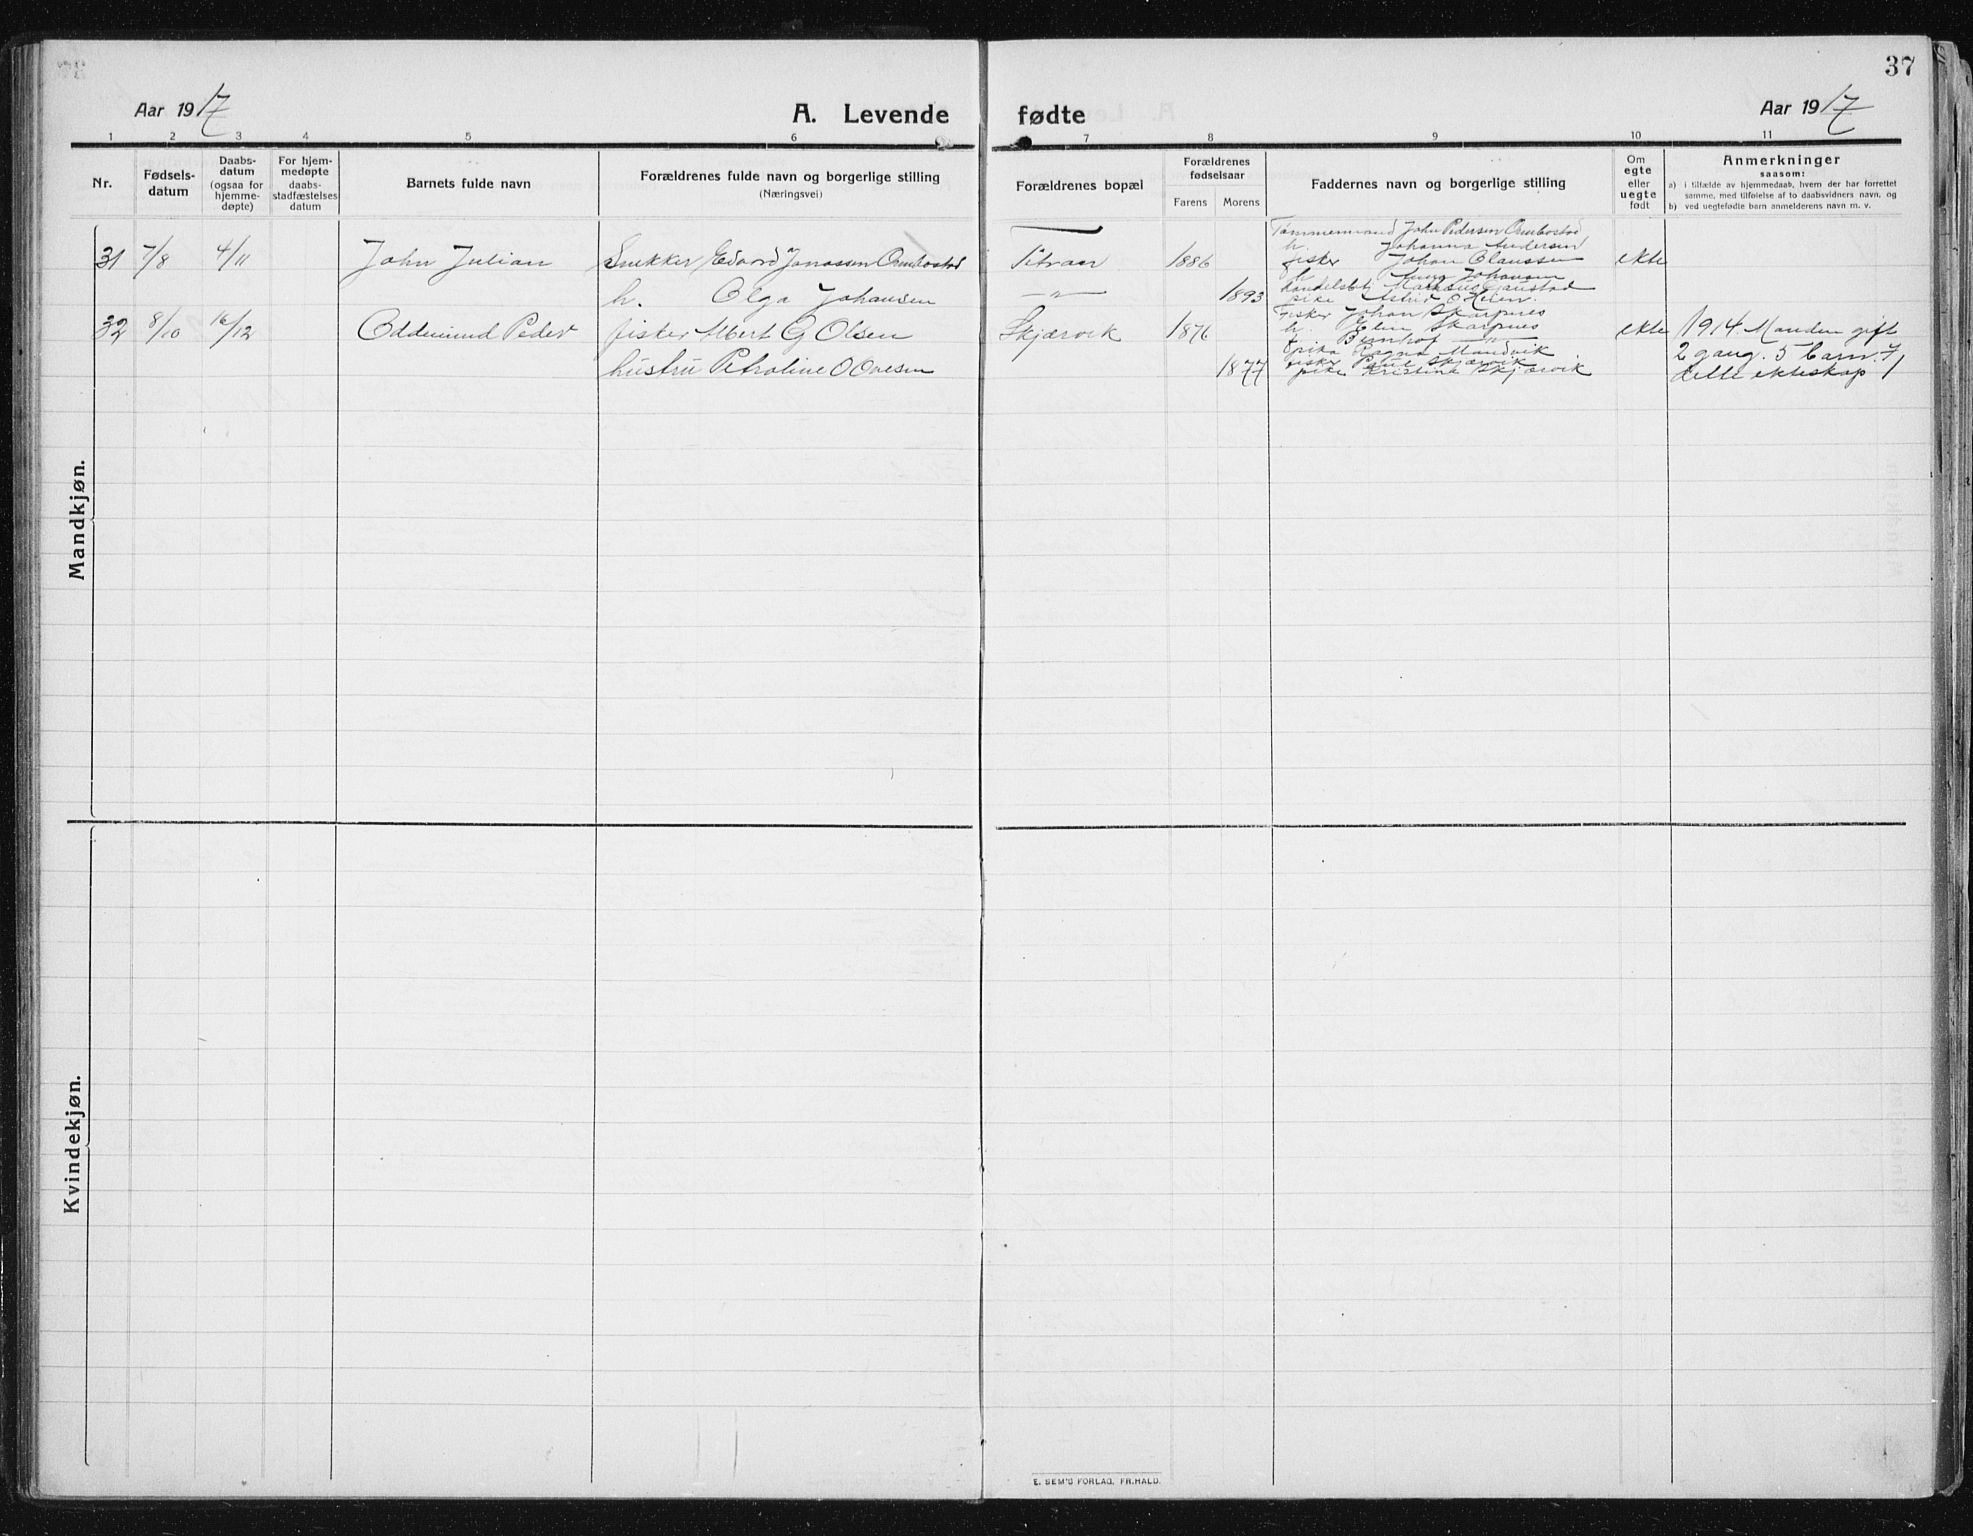 37
Aar 1917
A. Levende fødte
Aar 1917
1 2 3 4 5 6 7 8 9 10 11
Nr.
Fødsels-
datum
Daabs-
datum
(ogsaa for
hjemme-
døpte)
For hjem-
medøpte
daabs-
stadfæstelses
datum
Barnets fulde navn
Forældrenes fulde navn og borgerlige stilling
(Næringsvei)
Forældrenes bopæl
Forældrenes
fødselsaar
Farens Morens
Faddernes navn og borgerlige stilling
Om
egte
eller
uegte
født
Anmerkninger
saasom:
a) i tilfælde av hjemmedaab, hvem der har forrettet
samme, med tilføielse af to daabsvidners navn, og
b) ved uegtefødte barn anmelderens navn m. v.
Mandkjøn.
31 7/8 4/11 John Julian Snekker Edvard Jonassen Ombostad Titran 1886 ekte
h. Olga Johansen —„— 1893
Tømmermand John Pedersen Ombostad
h. Johanna Andersen
fisker Johan Claussen
h. Anna Johansen
handelsbtj Markus Gaustad
pike Astrid O
32 8/10 16/12 Oddmund Peder fisker Albert G Olsen Skjærvik 1876 ekte
hustru Petroline O Ovesen 1877
Fisker Johan Skarpnes
h. Elen Skarpnes
—„—
pike Ragna Mandvik
fisker Paul Skjærvik
pike Kristine Skjærvik
1914. Manden gift
2 gang. 5 barn i
dette ekteskap
Kvindekjøn.
E. SEM'S FORLAG, FR.HALD.